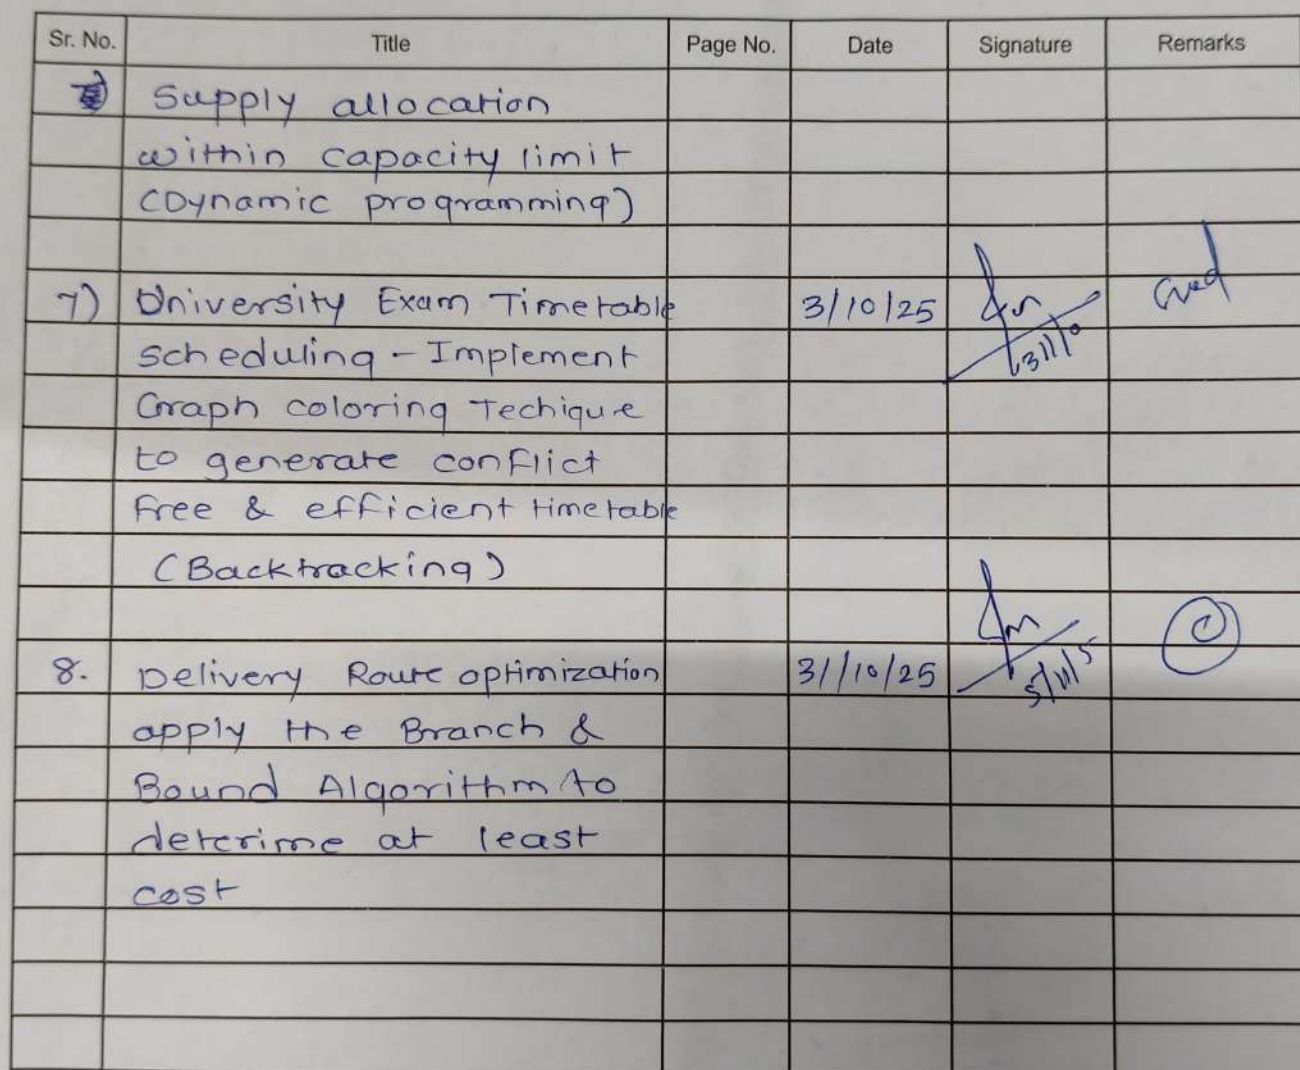 Sr. No. Title Page No. Date Signature Remarks
Supply allocation
within capacity limit
(Dynamic programming)
7) University Exam Timetable 3/10/25 Good
scheduling - Implement 31/10
Graph coloring Techique
to generate conflict
Free & efficient timetable
(Backtracking)
8. Delivery Route optimization 31/10/25
apply the Branch &
Bound Algorithm to
deterime at least
cost